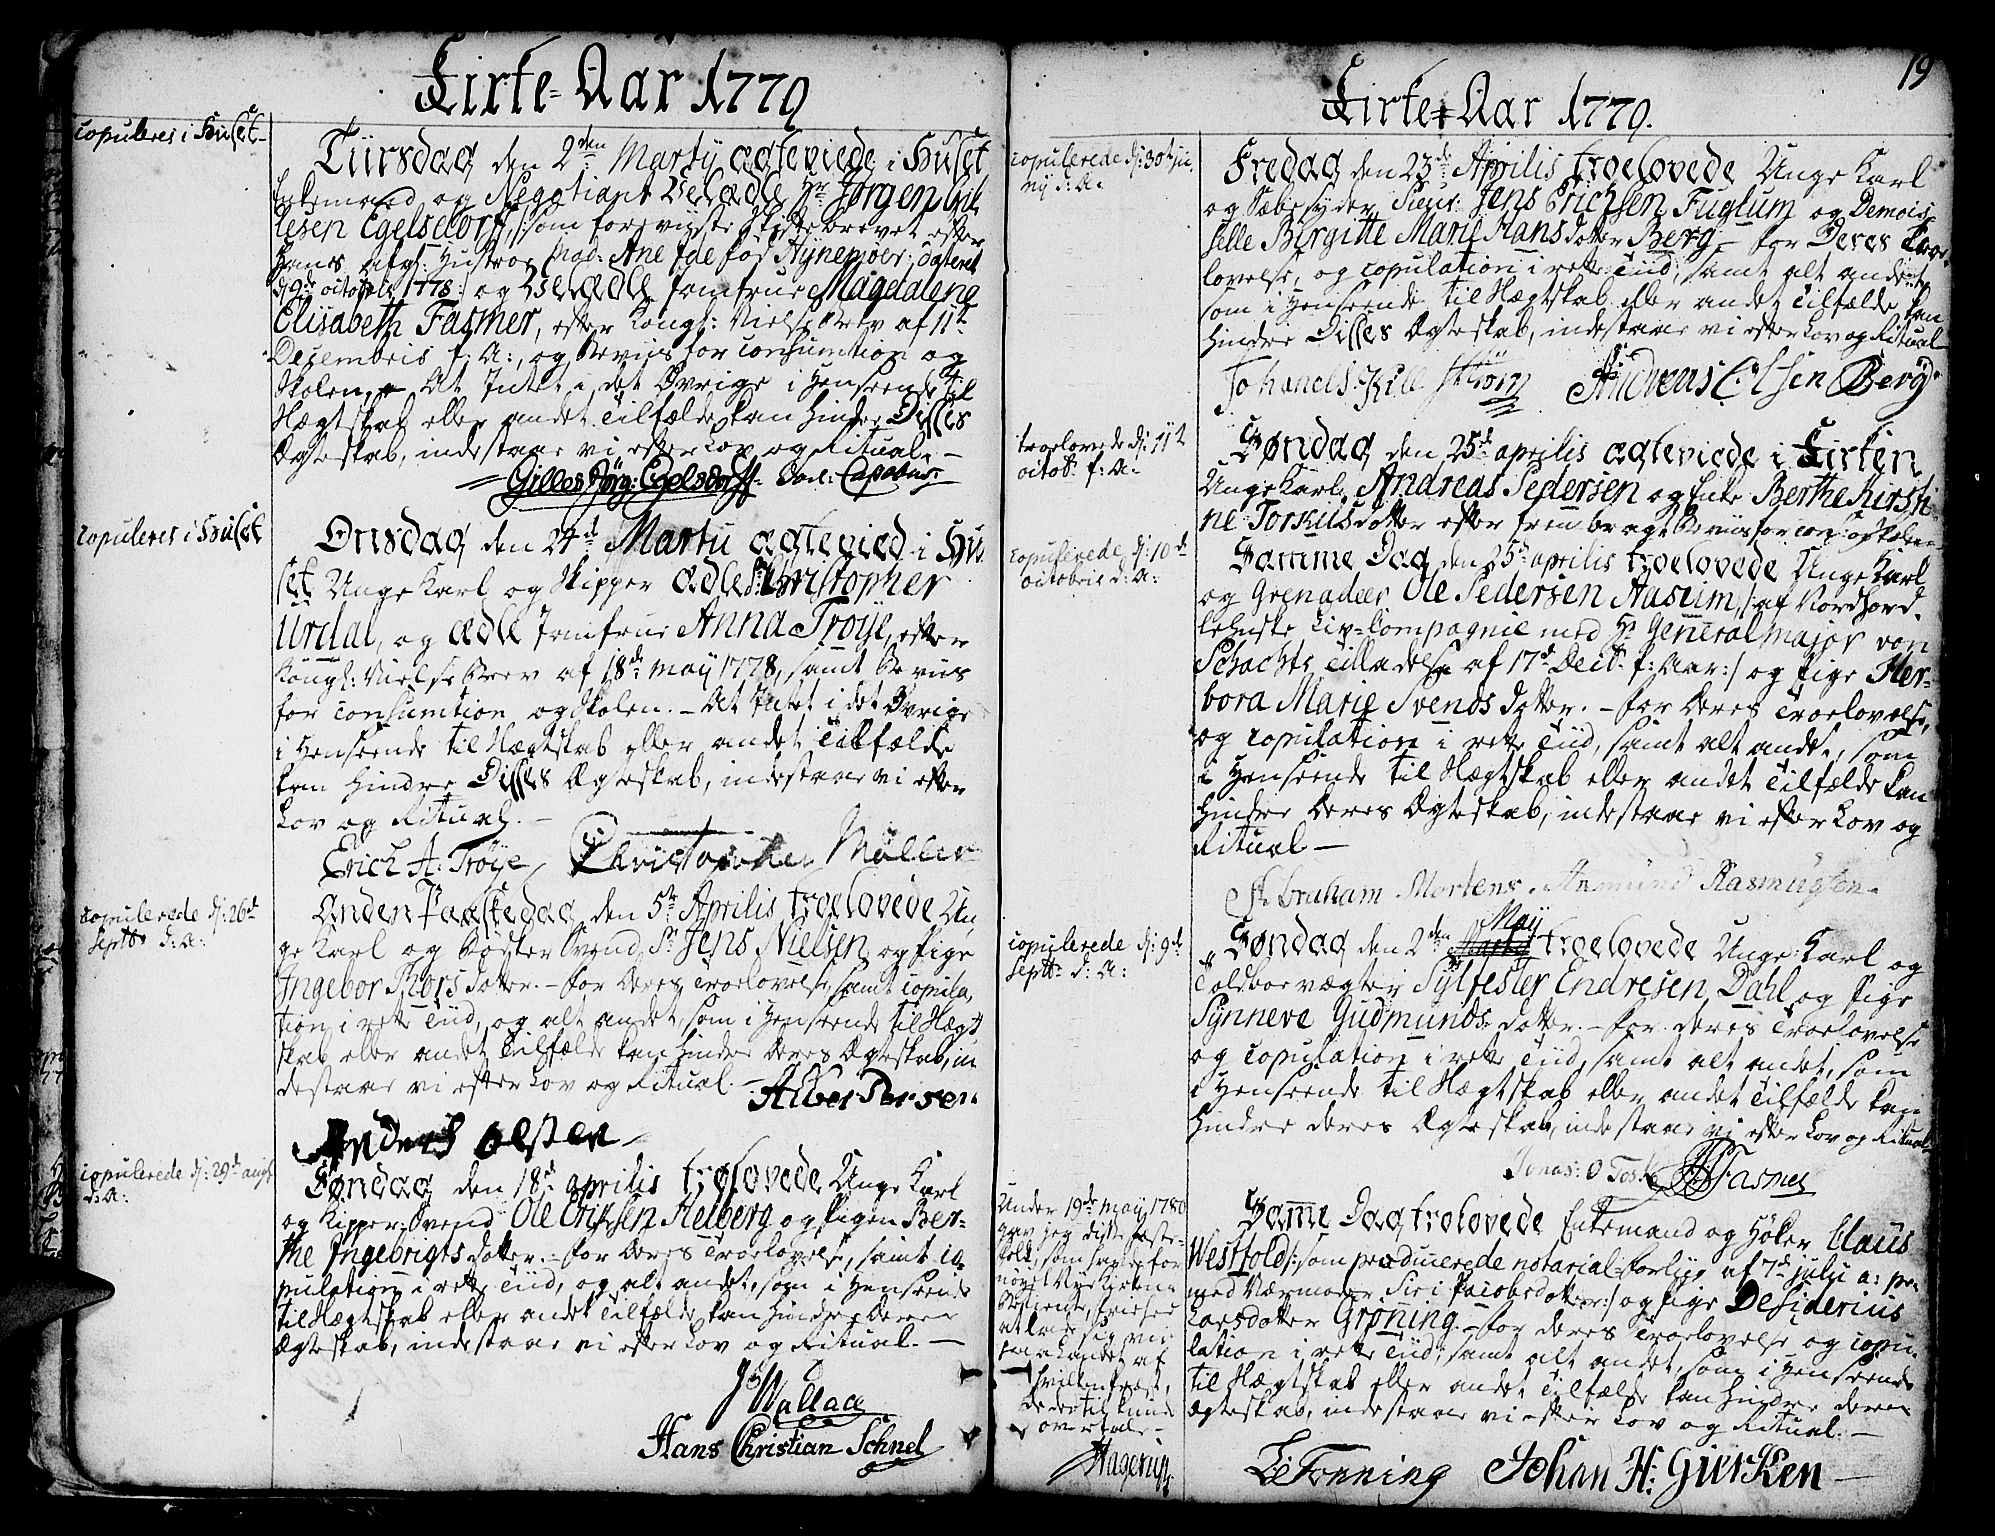 Kirke-Aar 1779
copuleres i Huset
Tiirsdag den 2den Martij ægteviede i Huset
Enkemand og Negotiant Velædle Hr Jørgen Gil
lesen Egelsdorff, /: som foreviiste Skiftebrevet efter
Hans afg: Hustroe Mad: Ane Ide fød Hynemøer, dateret
d: 9de octobris 1778:/ og Velædle Jomfrue Magdalene
Elisabeth Fasmer, efter Kongl: Vielse Brev af 11te
Decembris f: A:, og Beviis for consumtion og
Skolen, At Intet i det Øvrige i Henseende til
Slægtskab eller andet Tilfælde kan hindre Disses
Ægteskab, indestaae vi efter Lov og Ritual. -
Gilles Jørg: Egelsdorff
copuleres i Huset
Onsdag den 24d Martii ægtevied i Hu
set Unge Karl og Skipper ædle Sr Christopher
Urdal, og ædle Jomfrue Anna Trøye, efter
Kongl: Vielse Brev af 18d may 1778, samt Beviis
for consumtion og Skolen. - At Intet i det Øvrige
i Henseende til Slægtskab eller andet Tilfælde
kan hindre Disses Ægteskab, indestaae vi efter
Lov og Ritual. -
Erich A: Trøye Christopher Møller
copulerede d: 26d
Septbr d: A:
Anden Paaskedag den 5te Aprilis troelovede Un
ge Karl og Bødker Svend Sr Jens Nielsen og Pige
Ingebor Thorsdotter. - for Deres Troelovelse, samt copula
tion i rette Tiid, og alt andet, som i Henseende til Slægt
skab eller andet Tilfælde kan hindre Deres Ægteskab, in
destaae vi efter Lov og Ritual. -
Anders Olsen
copulerede d: 29d augs
d: A:
Søndag den 18d aprilis trolovede Unge Karl
og Kipper-Svend Ole Erichsen Helberg og Pigen Ber-
the Ingebrigtsdotter. - for Deres Troelovelse, samt co
pulation i rette Tiid, og alt andet, som i Henseende
til Slægtskab eller andet Tilfælde kan hindre Deres
Ægteskab, indestaae vi efter Lov og Ritual. -
Wallace
Hans Christian Schnel
19
Kirke-Aar 1779.
copulerede d: 30te ju
nij d: A:
Fredag den 23d Aprilis troelovede Unge Karl
og Sæbesyder Sieur Jens Erichsen Fuglum og Demois
selle Birgitte Marie Hansdotter Berg - for Deres Troe-
lovelse, og copulation i rette Tiid, samt alt andet,
som i Henseende til Slægtskab eller andet Tilfælde kan
hindre Disses Ægteskab, indestaae vi efter Lov og Ritual
Andreas Olsen Berg
troelovede d: 11te
octob: f: A:
Søndag den 25d aprilis ægteviede i Kirken
Unge Karl Andreas Pedersen og Enke Berthe Kirsti
ne Torkilsdotter efter frembragt Beviis for cons: og Skolen
copulerede d: 10d
octobris d: A:
Samme Dag den 25d aprilis troelovede Unge Karl
og Grenadeer Ole Pedersen Aaseim, /: af Nordhord
lehnske Liv-Compagnie med Hr Generalmajor von
Schachts Tilladelse af 17d Decb: f: Aar:/ og Pige Her-
bora Marie Svendsdotter. - for Deres Troelovelse,
og copulation i rette Tiid, samt alt andet, som
i Henseende til Slægtskab eller andet Tilfælde kan
hindre Deres Ægteskab, indestaae vi efter Lov og
Ritual -
Abraham Mortens. Anmund Rasmussen
copulerede d: 9d
Septb: d: A:
Søndag den 2den May troelovede Unge Karl og
Toldboevægter Sylfester Endresen Dahl og Pige
Synneve Gudmundsdotter. - for deres Troelovelse
og copulation i rette Tiid, samt alt andet, som
i Henseende til Slægtskab eller andet Tilfælde kan
hindre deres Ægteskab, indestaae vi efter Lov og Ritual
Fasmer
Under 19de may 1780
gav jeg disse Feste-
folk, som havde for
nøyet Nye Kirkens
Betiente, Friehed
at lade sig vie
paa Landet af
hvilken Præst,
de dertil kunde
overtale -
Hagerup
Samme Dag trolovede Enkemand og Høker Claus
Westfold /: som producerede notarial-forliig af 7d julii a: p:
med Værmoder Siri Jacobsdotter:/ og Pige Desiderius
Larsdotter Grøning. - for deres Troelovelse og copu-
lation i rette Tiid, samt alt andet, som i Henseende
til Slægtskab eller andet Tilfælde kan hindre deres
Ægteskab, indestaae vi efter Lov og Ritual. -
Tønning Johan H: Giercken